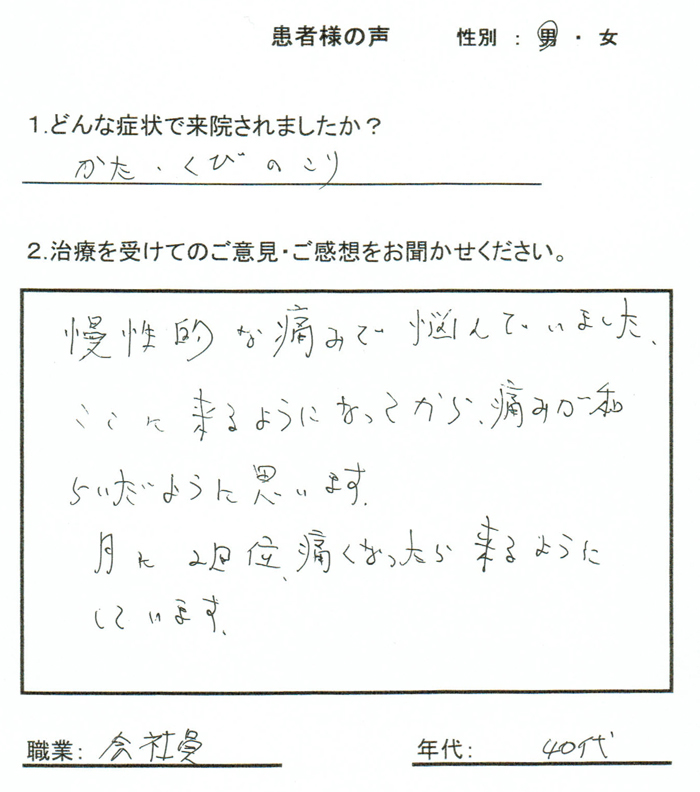 患者様の声 性別 : 男 ・ 女
1.どんな症状で来院されましたか?
かた・くびのこり
2.治療を受けてのご意見・ご感想をお聞かせください。
慢性的な痛みで悩んでいました、
ここに来るようになってから、痛みが和
らいだように思います。
月に2回位、痛くなったら来るように
しています。
職業: 会社員 年代: 40代